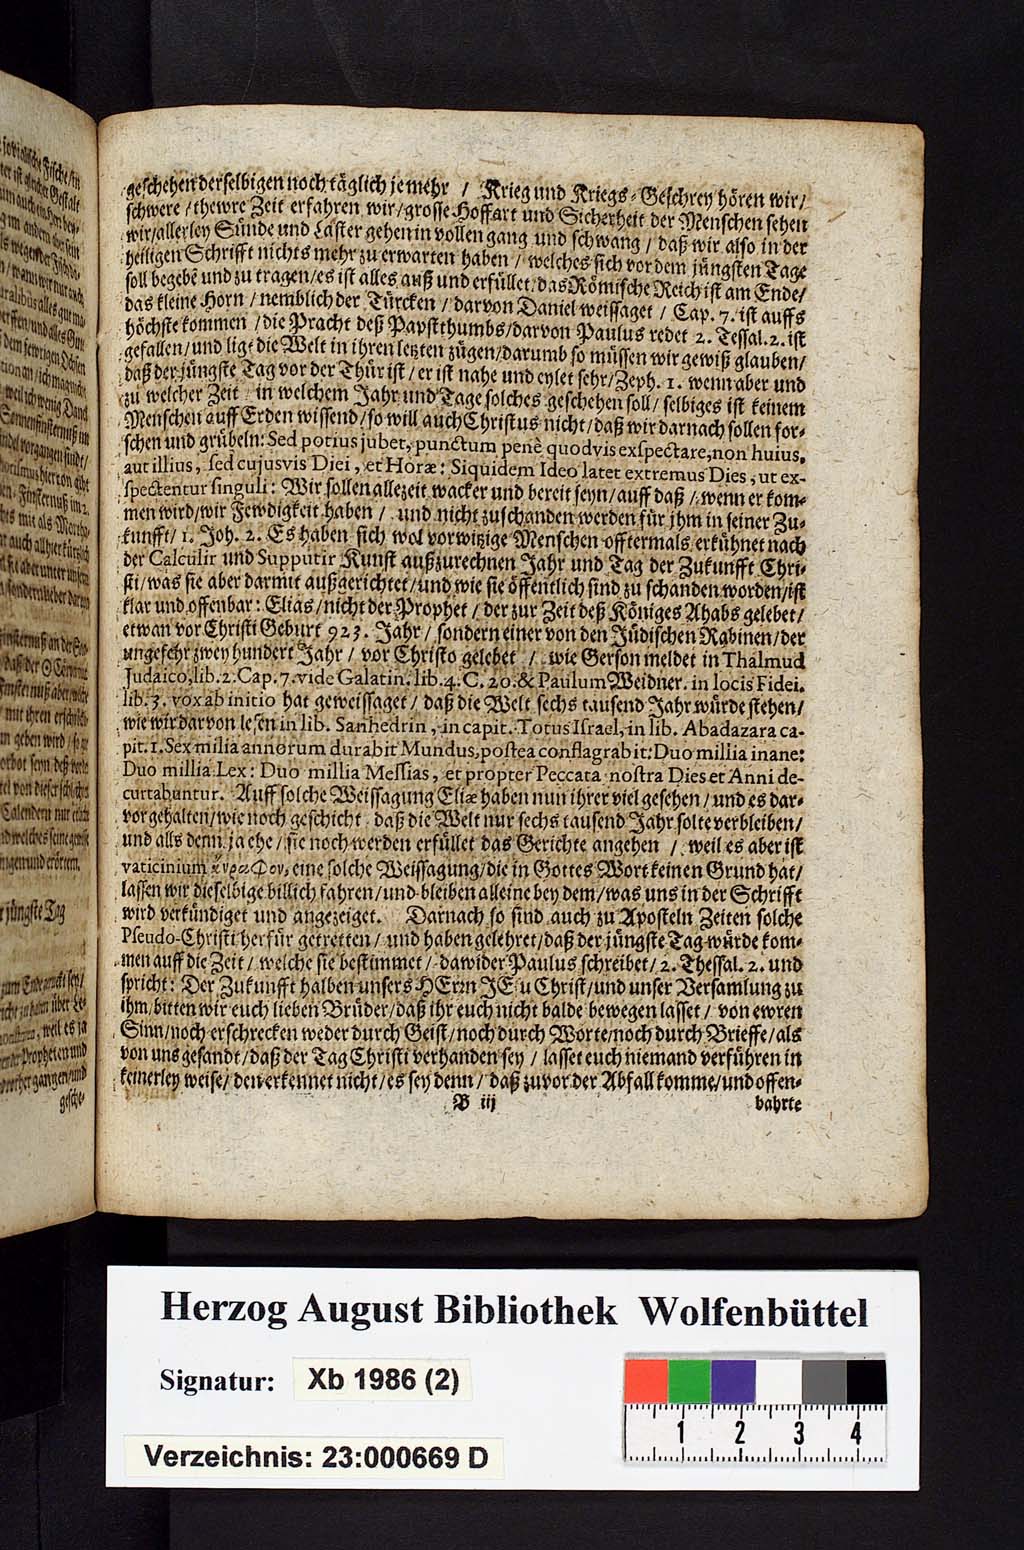 geschehen derselbigen noch täglich je mehr / Krieg und Kriegs-Geschrey hören wir /
schwere / thewre Zeit erfahren wir / grosse Hoffart und Sicherheit der Menschen sehen
wir / allerley Sünde und Laster gehen in vollen gang und schwang / daß wir also in der
heiligen Schrifft nichts mehr zu erwarten haben / welches sich vor dem jüngsten Tage
soll begebē und zu tragen / es ist alles auß und erfüllet / das Römische Reich ist am Ende /
das kleine Horn / nemblich der Türcken / darvon Daniel weissaget / Cap. 7. ist auffs
höchste kommen / die Pracht deß Papstthumbs / darvon Paulus redet 2. Tessal. 2. ist
gefallen / und ligt die Welt in ihren letzten zügen / darumb so müssen wir gewiß glauben /
daß der jüngste Tag vor der Thür ist / er ist nahe und eylet sehr / Zeph. 1. wenn aber und
zu welcher Zeit / in welchem Jahr und Tage solches geschehen soll / selbiges ist keinem
Menschen auff Erden wissend / so will auch Christus nicht / daß wir darnach sollen for-
schen und grübeln: Sed potius jubet, punctum penè quodvis exspectare, non huius,
aut illius, sed cujusvis Diei, et Horæ: Siquidem Ideo latet extremus Dies, ut ex-
spectentur singuli: Wir sollen allezeit wacker und bereit seyn / auff daß / wenn er kom-
men wird / wir Fewdigkeit haben / und nicht zuschanden werden für jhm in seiner Zu-
kunfft / 1. Joh. 2. Es haben sich wol vorwitzige Menschen offtermals erkühnet nach
der Calculir und Supputir Kunst außzurechnen Jahr und Tag der Zukunfft Chri-
sti / was sie aber darmit außgerichtet / und wie sie öffentlich sind zu schanden worden / ist
klar und offenbar: Elias / nicht der Prophet / der zur Zeit deß Königes Ahabs gelebet /
etwan vor Christi Geburt 923. Jahr / sondern einer von den Jüdischen Rabinen / der
ungefehr zwey hundert Jahr / vor Christo gelebet / wie Gerson meldet in Thalmud
Judaico, lib. 2. Cap. 7. vide Galatin. lib. 4. C. 20. & Paulum Weidner. in locis Fidei.
lib. 3. vox ab initio hat geweissaget / daß die Welt sechs tausend Jahr würde stehen /
wie wir darvon lesen in lib. Sanhedrin, in capit. Totus Israel, in lib. Abadazara ca-
pit. 1. Sex milia annorum durabit Mundus, postea conflagrabit: Duo millia inane:
Duo millia Lex: Duo millia Messias, et propter Peccata nostra Dies et Anni de-
curtabuntur. Auff solche Weissagung Eliæ haben nun ihrer viel gesehen / und es dar-
vor gehalten / wie noch geschicht / daß die Welt nur sechs tausend Jahr solte verbleiben /
und alls denn ja ehe / sie noch werden erfüllet das Gerichte angehen / weil es aber ist
vaticinium eine solche Weissagung / die in Gottes Wort keinen Grund hat /
lassen wir dieselbige billich fahren / und bleiben alleine bey dem / was uns in der Schrifft
wird verkündiget und angezeiget. Darnach so sind auch zu Aposteln Zeiten solche
Pseudo-Christi herfür getretten / und haben gelehret / daß der jüngste Tag würde kom-
men auff die Zeit / welche sie bestimmet / dawider Paulus schreibet / 2. Thessal. 2. und
spricht: Der Zukunfft halben unsers HErrn JEsu Christ / und unser Versamlung zu
ihm / bitten wir euch lieben Brüder / daß ihr euch nicht balde bewegen lasset / von ewren
Sinn / noch erschrecken weder durch Geist / noch durch Worte / noch durch Brieffe / als
von uns gesandt / daß der Tag Christi verhanden sey / lasset euch niemand verführen in
keinerley weise / den er kennet nicht / es sey denn / daß zuvor der Abfall komme / und offen-
B iij bahrte
Herzog August Bibliothek Wolfenbüttel
Signatur: Xb 1986 (2)
1 2 3 4
Verzeichnis: 23:000669 D